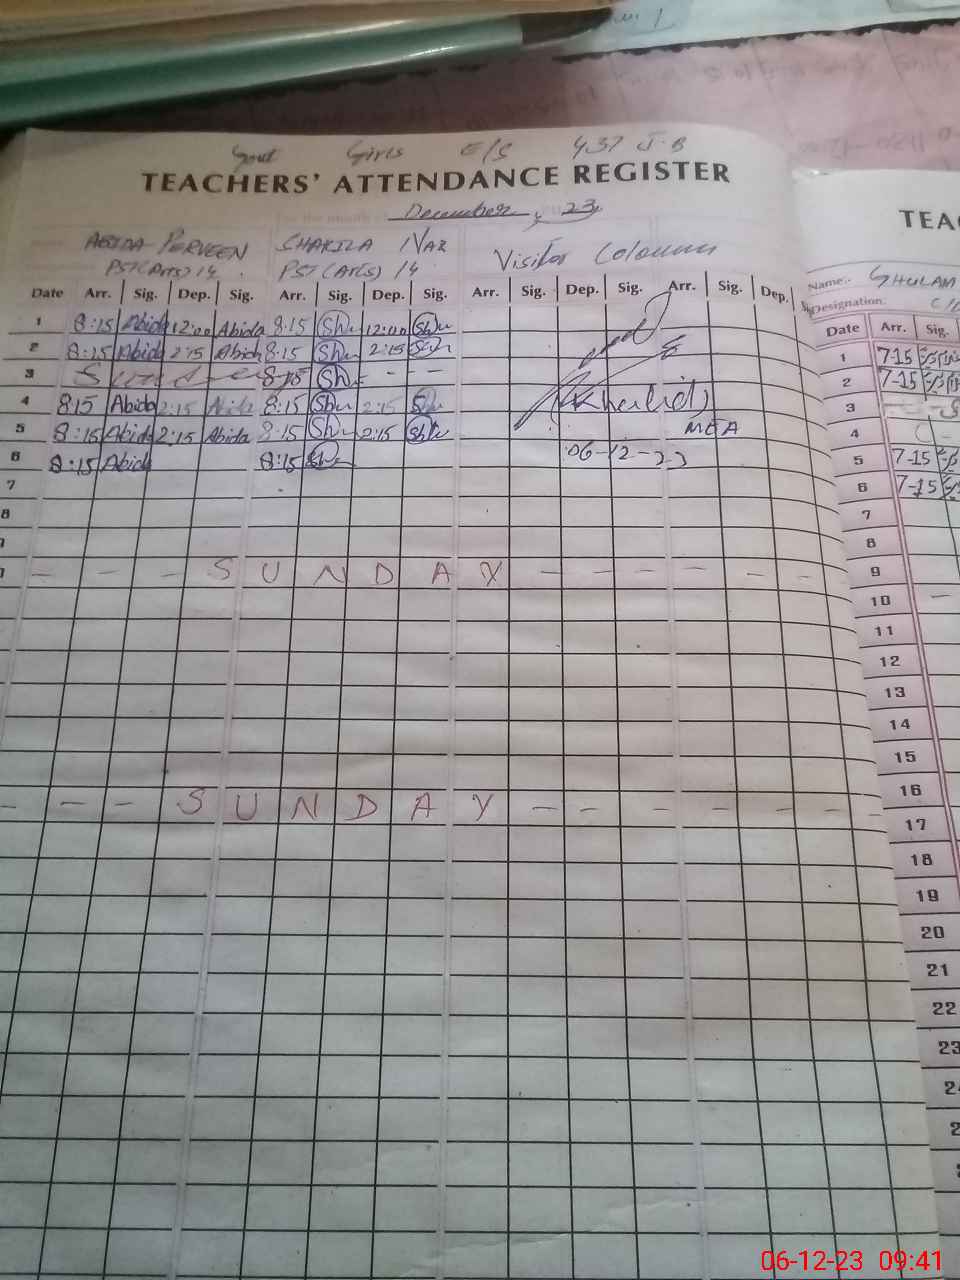 Govt Girls E/S 437 J.B
TEACHERS' ATTENDANCE REGISTER
For the month December, 23
ABIDA PERVEEN SHAKILA NAZ Visitor Coloumn
PST(Arts) 14 PST(Arts) 14
Date Arr. Sig. Dep. Sig. Arr. Sig. Dep. Sig. Arr. Sig. Dep. Sig. Arr. Sig. Dep.
1 8:15 Abida 12:00 Abida 8:15 Sh 12:00 Sh
2 8:15 Abida 2:15 Abida 8:15 Sh 2:15 Sh
3 Sunday 8:15 Sh - - -
4 8:15 Abida 2:15 Abida 8:15 Sh 2:15 Sh (Khalid)
5 8:15 Abida 2:15 Abida 8:15 Sh 2:15 Sh MEA
6 8:15 Abida 8:15 Sh 06-12-23
7
8
- - - S U N D A Y - - - - - -
- - - S U N D A Y - - - - - - -
TEAC
Name:- GHULAM
Designation.
Date Arr. Sig.
1 7-15
2 7-15
3
4
5 7-15
6 7-15
7
8
9
10 -
11
12
13
14
15
16
17
18
19
20
21
22
23
06-12-23 09:41